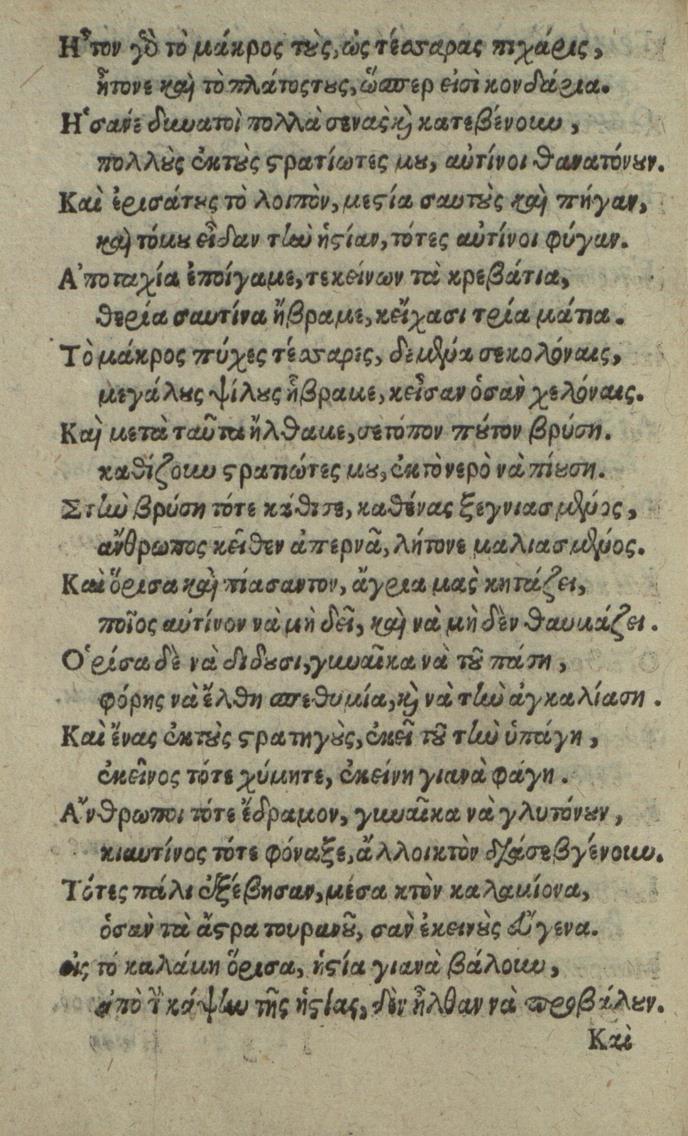 Ἦτον γὸ τὸ μάκρος τους, ὡς τέσσαρας πιχάρις,
ἤτονε καὶ τὸ πλάτοςτους, ὥσπερ εἰσὶ κονδάρια.
Ἡ'σανε δυνατοὶ πολλὰ σενας κὶ κατεβένουν,
πολλοὺς ἐκτοὺς στρατίωτες μου, αὐτίνοι θανατόνουν.
Καὶ ἐρισάτους τὸ λοιπὸν, μεστία σαυτοὺς καὶ πήγαν,
καὶ τόμου εἶδαν τὴν ἡστίαν, τότες αὐτίνοι φύγαν.
Α'ποταχία ἐποίγαμε, τεκείνων τὰ κρεβάτια,
θερία σαυτίνα ἤβραμε, κεἴχασι τρία μάτια.
Τὸ μάκρος πύχες τέσσαρες, δεμένα σεκολόναις,
μεγάλους ψίλους ἧβραμε, κεἶσαν ὁσὰν χελόναις.
Καὶ μετὰ ταῦτα ἤλθαμε, σετόπον πούτον βρύση.
καθίζουν στρατιώτες μου, ἐκτὸνερὸ νὰ πίουση.
Στὴν βρύση τότε κάθισε, καθένας ξεγνιασμένος,
ἄνθρωπος κεῖθεν ἀπερνᾶ, λήτονε μαλιασμένος.
Καὶ ὅρισα καὶ πίασαντον, ἄγρια μας κητάζει,
ποῖος αὐτίνον νὰ μὴ δεῖ, καὶ νὰ μὴ δὲν θαυμάζει.
Ο'ρίσα δὲ νὰ δίδουσι, γυναῖκα νὰ τοῦ πάση,
φόρης νὰ ἔλθη σπεθυμία, κὶ νὰ τὴν ἀγκαλίαση.
Καὶ ἕνας ἐκτοὺς στρατηγοὺς, ἐκεῖ τοῦ τὴν ὑπάγη,
ἐκεῖνος τότε χύμησε, ἐκείνη γιανὰ φάγη.
Α'νθρωποι τότε ἔδραμον, γυναῖκα νὰ γλυτόνουν,
κιαυτίνος τότε φόναξε, ἄλλοι κτὸν δζάσεβγένουν.
Τότες πάλι ἐξέβησαν, μέσα κτὸν καλαμίονα,
ὁσὰν τὰ ἄστρα τουρανοῦ, σαν ἐκεινοὺς εὔγενα.
εἰς τό καλάμη ὅρισα, ἡστία γιανὰ βάλουν,
ἀπὸ τὶ κάψην τῆς ἡστίας, δὲν ἦλθαν νὰ προβάλουν.
Καὶ